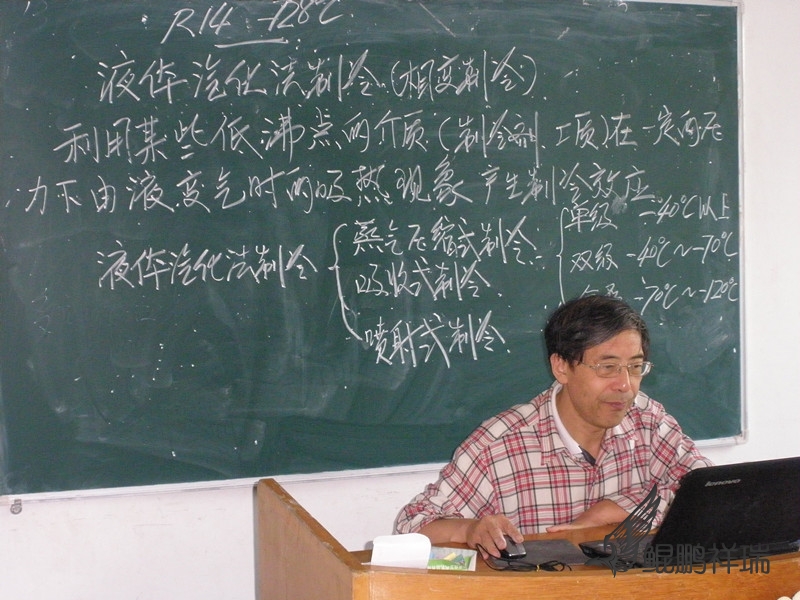 R14 -128℃
液体汽化法制冷(相变制冷)
利用某些低沸点的介质(制冷剂、工质)在一定的压
力下由液变气时的吸热现象产生制冷效应
液体汽化法制冷
蒸气压缩式制冷
吸收式制冷
喷射式制冷
单级 -40℃以上
双级 -40℃~-70℃
-70℃~-120℃
lenovo
鲲鹏祥瑞